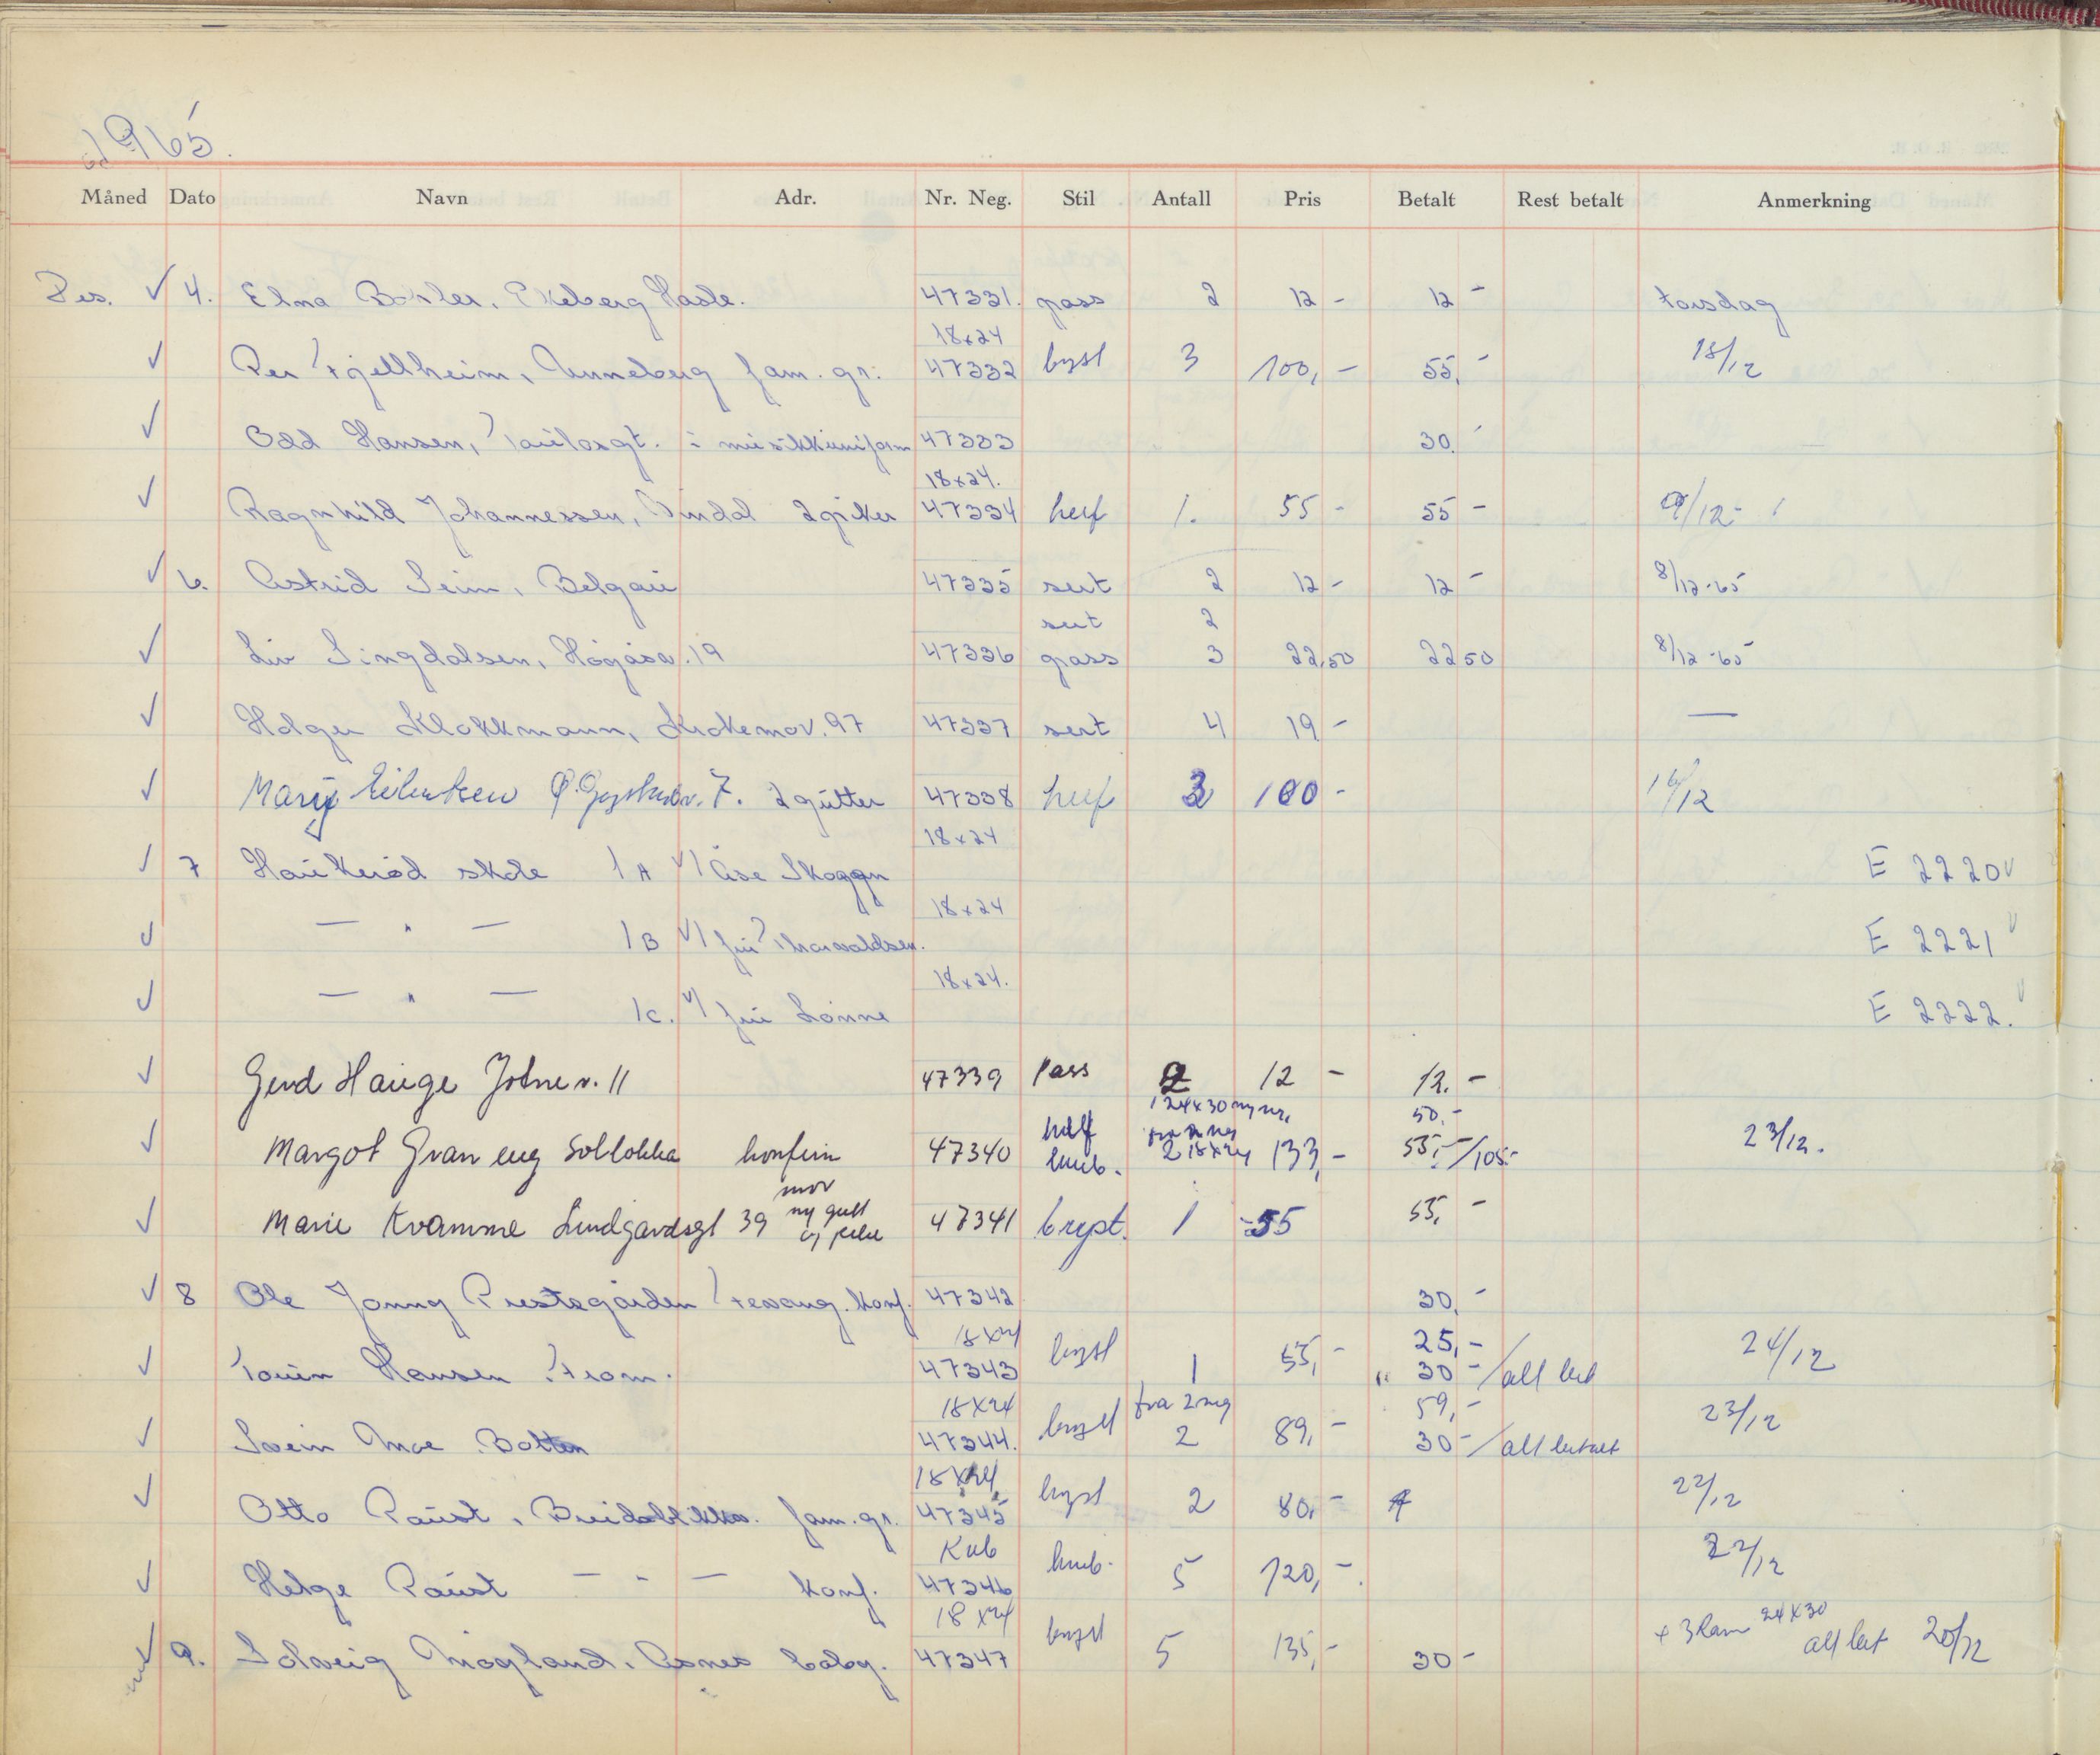 1965.
Måned Dato Navn Adr. Nr. Neg. Stil Antall Pris Betalt Rest betalt Anmerkning
Des. ✓ 4. Elna Ekeberg Hasle. 47331. pass 2 12 - 12 - torsdag
18x24
✓ Per Fjellheim, Unneberg fam. gr. 47332 byst 3 100,- 55,- 18/12
✓ Odd Hansen, i musikkuniform 47333 30,-
18x24.
✓ Ragnhild Johannessen, 2 piker 47334 helf 1. 55 - 55 - 9/12-
✓ 6. Astrid Seim, Belgau 47335 sert 2 12 - 12 - 8/12-65
sert 2
✓ Liv Lingdalsen, Högåsv. 19 47336 pass 3 22,50 22 50 8/12-65
✓ Holger Klokkmann, Krokemov. 97 47337 sert 4 19 - —
✓ Mary 7. 2 gutter 47338 helf 3 100 - 16/12
18x24
✓ 7 Haukerød skole 1A v/ Åse Skoggn E 2220 ✓
18x24
✓ — " — 1B v/ fru Thorvaldsen. E 2221 ✓
18x24.
✓ — " — 1c. v/ fru Lønne E 2222. ✓
✓ Gerd Hauge Jotnev. 11 47339 Pass 2 12 - 12.-
1 24x30 ny nr. 50.-
✓ Margot Graneng Solløkka konfirm 47340 helf knib. 2 18x24 133,- 55,-/105.- 23/12.
mor
✓ Marie Kvamme Lindgardsgt 39 og 47341 brypt. 1 55 55,-
✓ 8 Ole Jonny Prestegården Tessang. konf. 47342 30,-
18x24 25,-
✓ Hansen Fram. 47343 byst 1 55,- " 30 -/all bet 24/12
18x24 fra 2 neg 59,-
✓ Svein Moe 47344. byst 2 89,- 30 -/all betalt 23/12
18x24
✓ Otto Paust, fam. gr. 47345 byst 2 80,- 22/12
Kub
✓ Helge Paust — " — konf. 47346 knib. 5 120,-. 22/12
18x24 + 3 Ram 24x30
✓ 9. Solveig Mogland, Åsnes baby. 47347 byst 5 135,- 30 - all bet 20/12